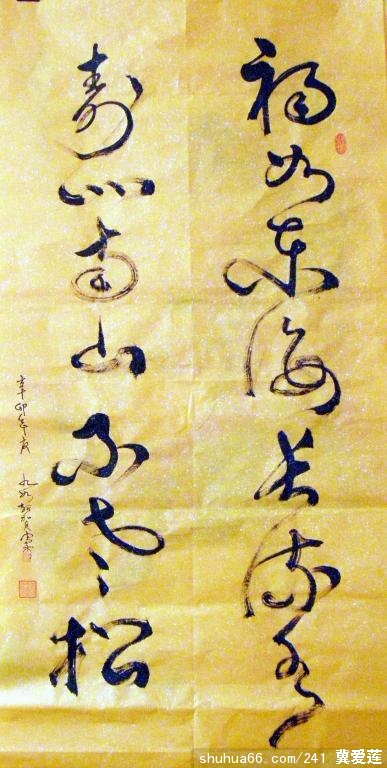 福如东海长流水
寿比南山不老松
辛卯年
shuhua66.com/241 冀爱莲